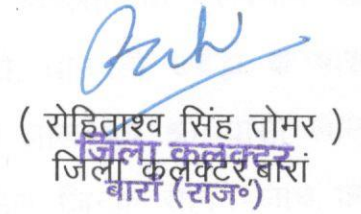 ( रोहिताश्व सिंह तोमर )
जिला कलक्टर
जिला कलेक्टर,बारां
बारां (राज०)